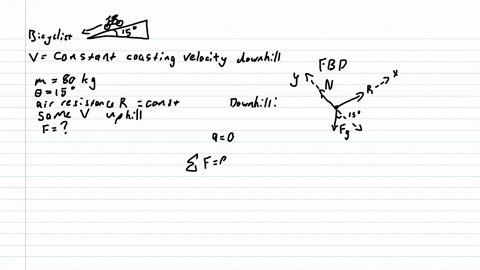 Bicyclist 15°
V = Constant coasting velocity downhill
m = 80 kg
θ = 15°
air resistance R = const
Same V uphill
F = ?
Downhill:
a = 0
∑ F =
FBD
y N R x
15°
Fg